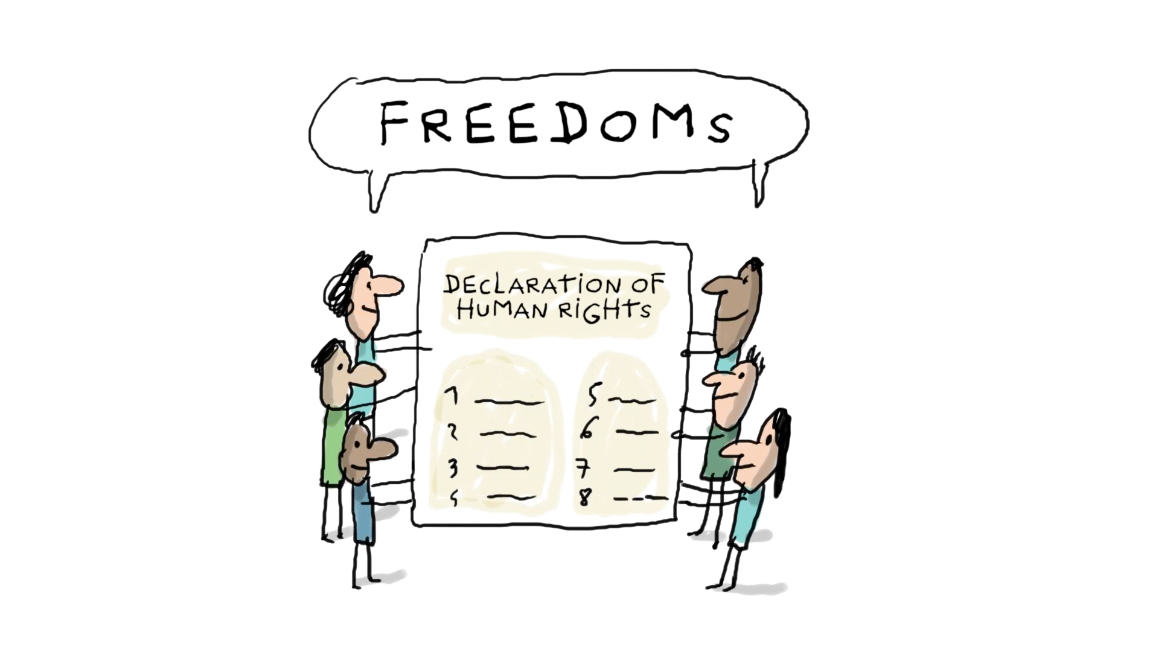 FREEDOMs
DECLARATION OF
HUMAN RiGHTs
1
2
3
4
5
6
7
8